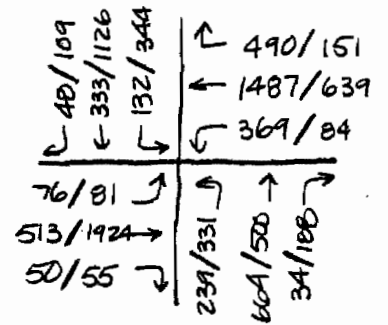 48/109
333/1126
132/344
490/151
1487/639
369/84
76/81
513/1924
50/55
239/331
664/500
34/188